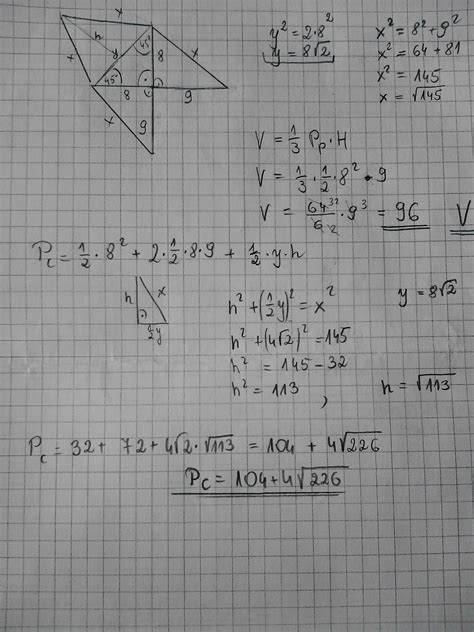 x
h
y
45°
8
x
x
45°
8
9
x
9
y² = 2·8²
y = 8√2
x² = 8² + 9²
x² = 64 + 81
x² = 145
x = √145
V = 1/3 Pp · H
V = 1/3 · 1/2 · 8² · 9
V = 64³²/6₂ · 9³ = 96 V
Pc = 1/2 · 8² + 2 · 1/2 · 8 · 9 + 1/2 · y · h
h
x
1/2y
h² + (1/2y)² = x²
y = 8√2
h² + (4√2)² = 145
h² = 145 - 32
h² = 113 , h = √113
Pc = 32 + 72 + 4√2 · √113 = 104 + 4√226
Pc = 104 + 4√226